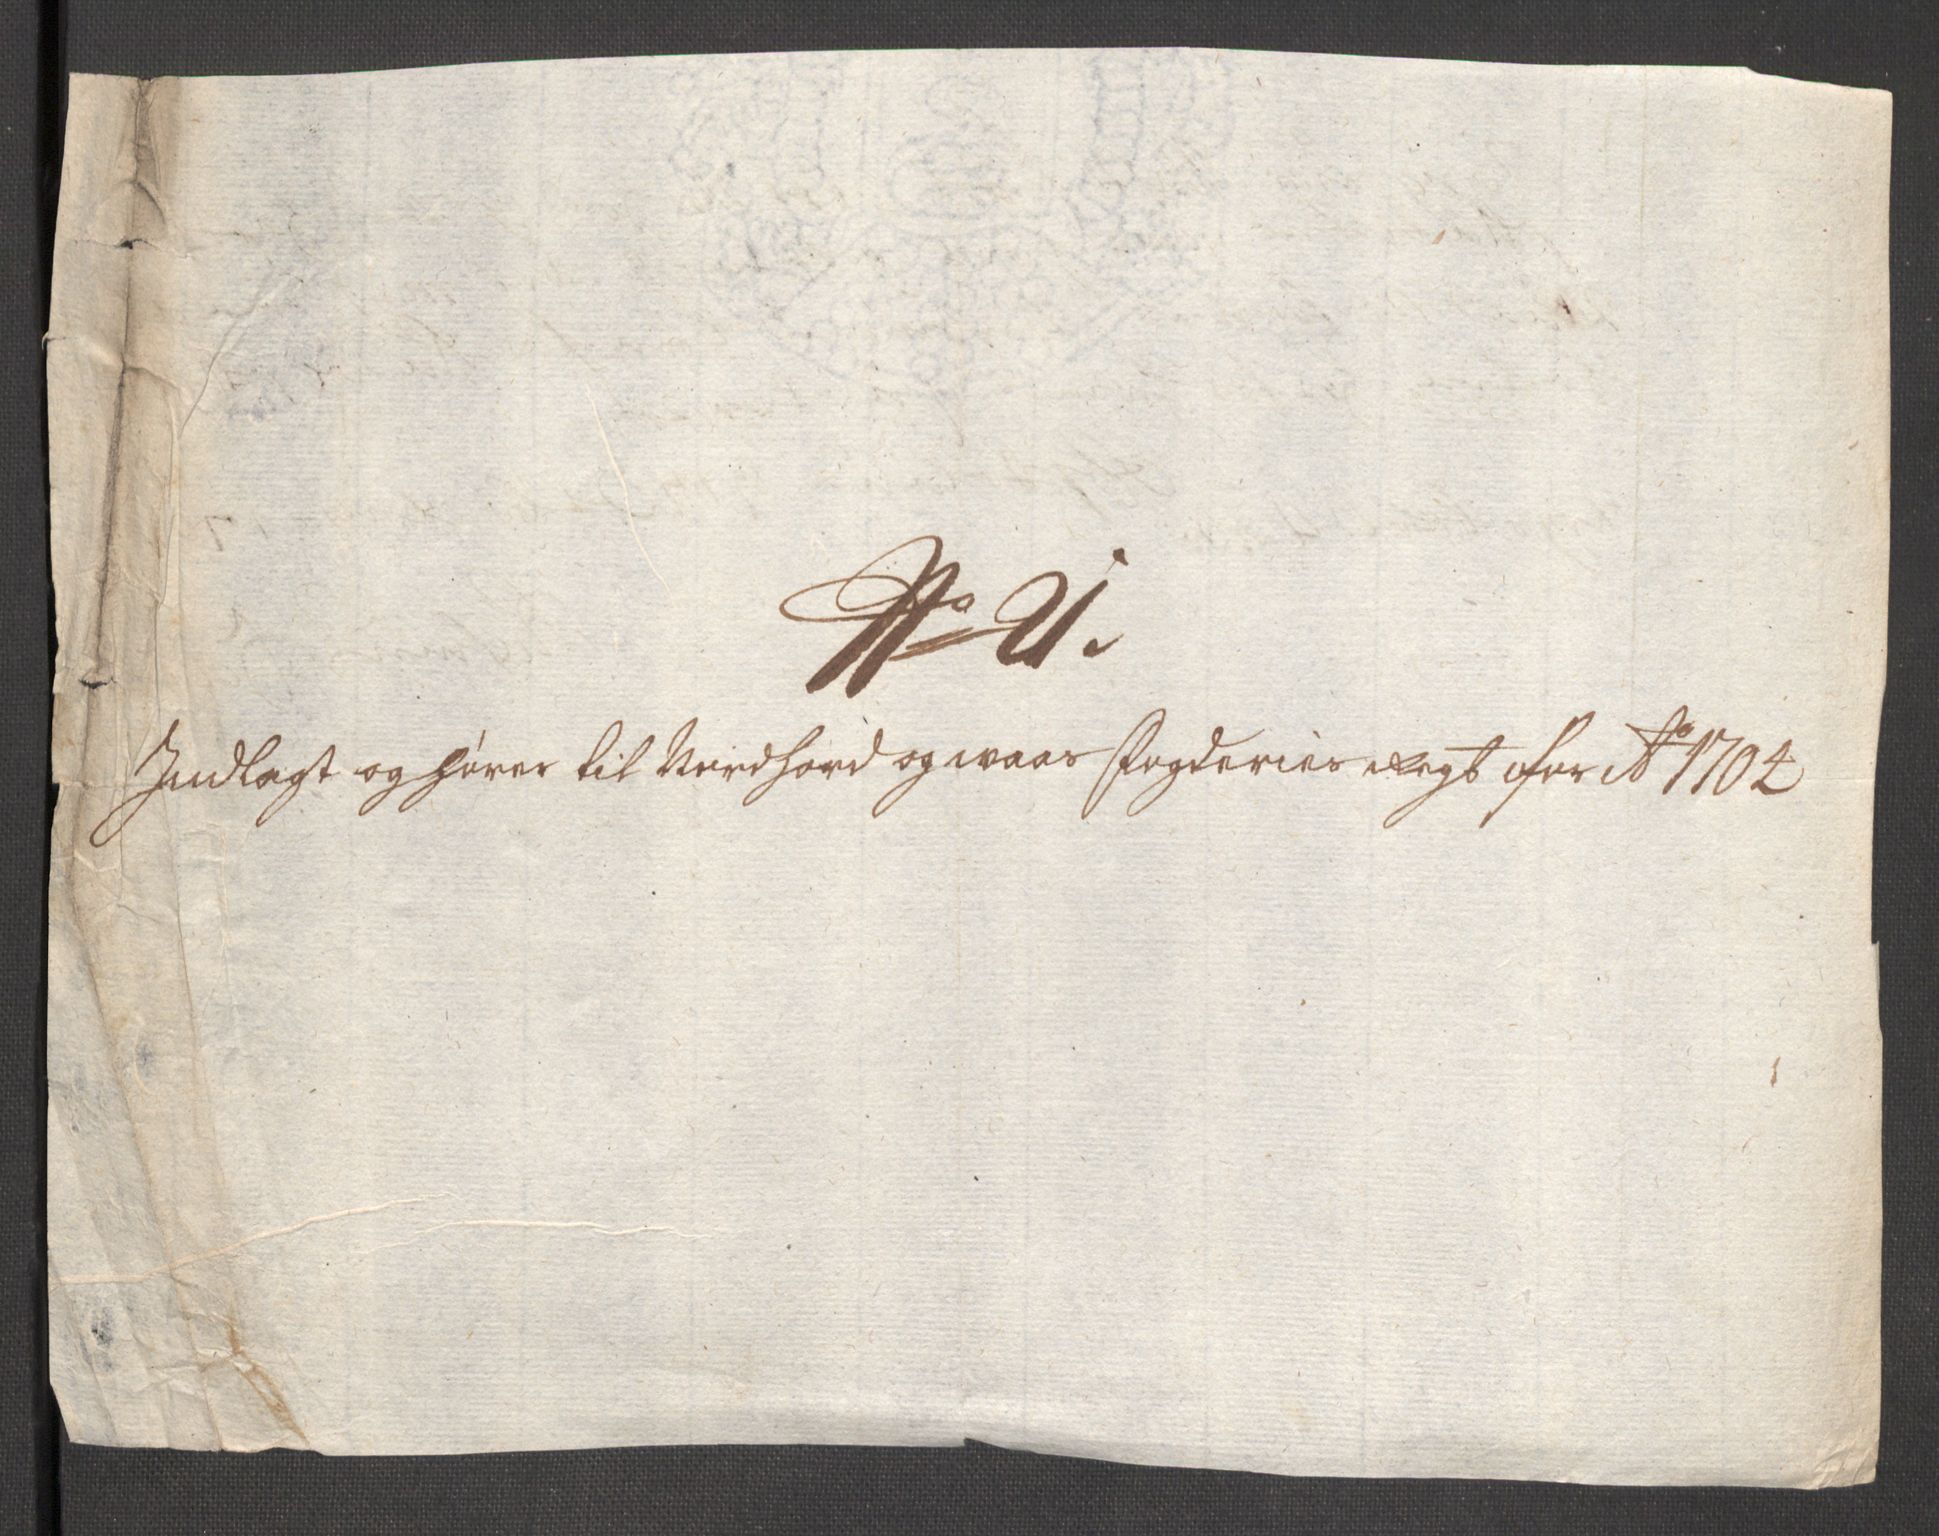 No U.
Indlagt og hører til Nordhord og waas fogderies Regb for Ao 1704